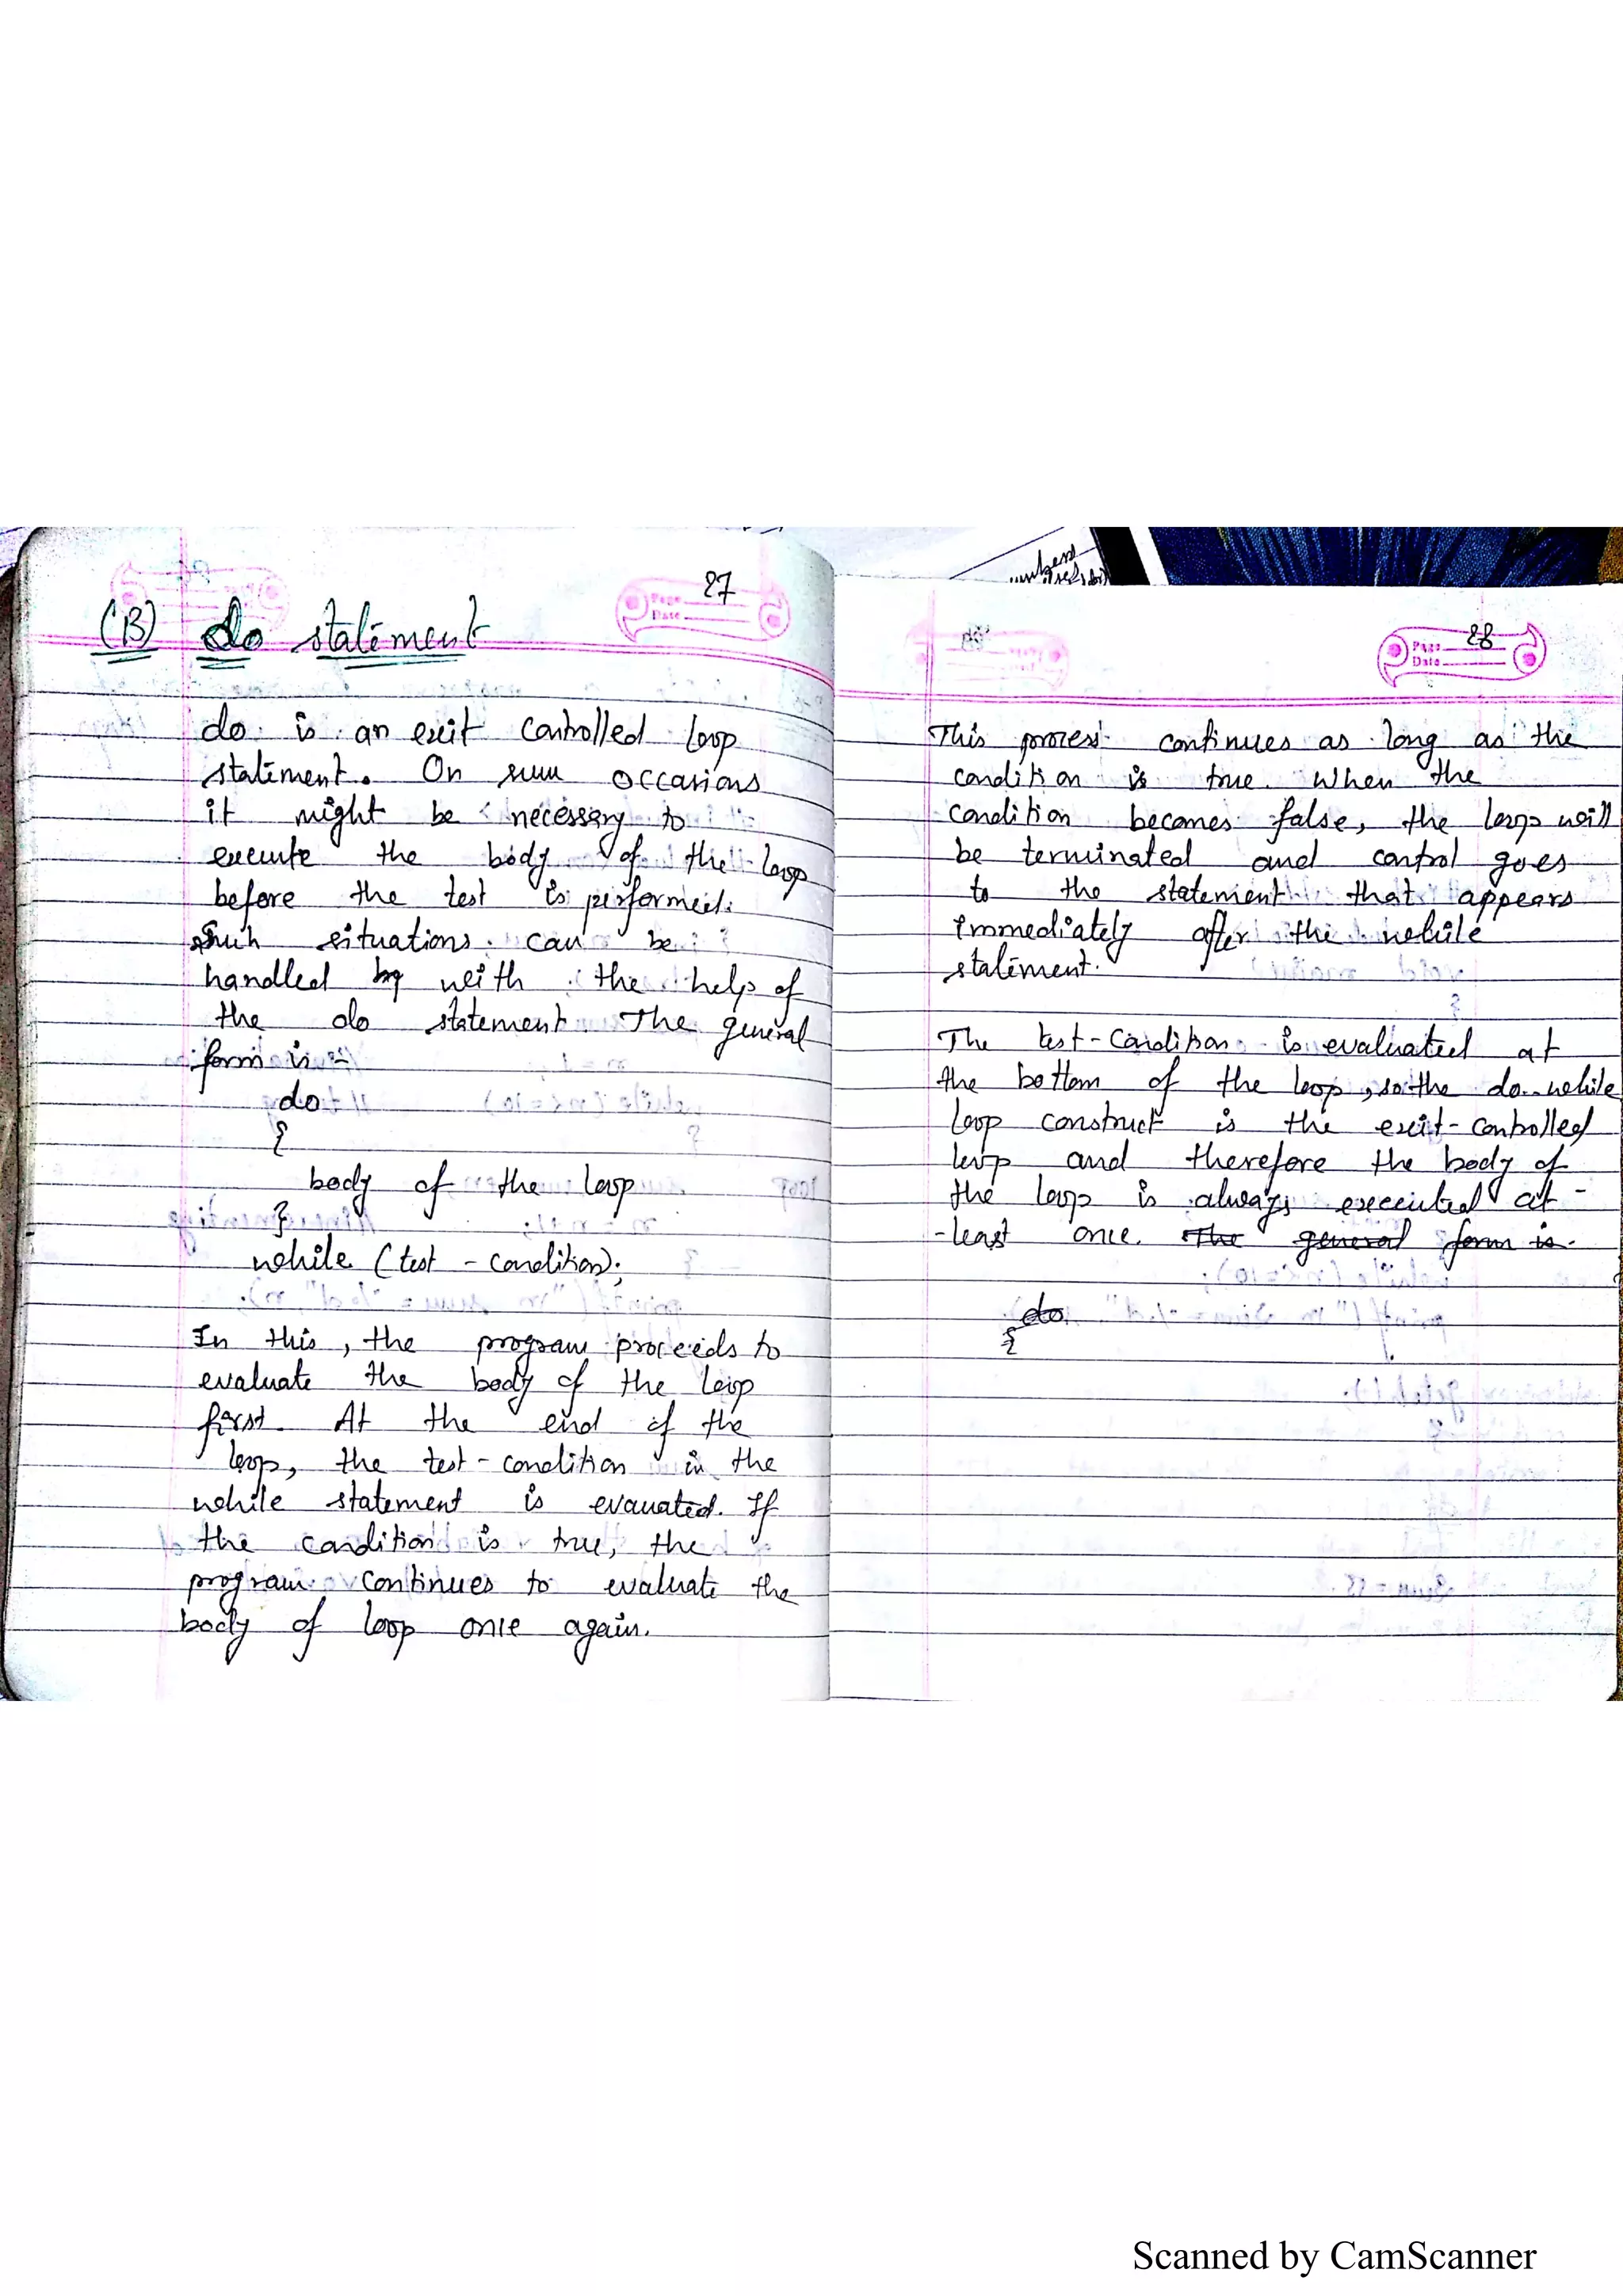 27
(B) do statement
do is an exit controlled loop
statement. On occasions
it might be necessary to
execute the body of the loop
before the test is performed.
Such situations can be
handled by with the help of
the do statement. The general
form is :-
do
{
body of the loop
}
while (test - condition);
In this, the program proceeds to
evaluate the body of the loop
first. At the end of the
loop, the test - condition in the
while statement is evauated. If
the condition is true, the
program continues to evaluate the
body of loop once again.
Page 28
Date
This process continues as long as the
condition is true. When the
condition becomes false, the loop will
be terminated and control goes
to the statement that appears
immediately after the while
statement.
The test - condition is evaluated at
the bottom of the loop, so the do..while
loop construct is the exit - controlled
loop and therefore the body of
the loop is always executed at -
- least once. The general form is
do
{
Scanned by CamScanner